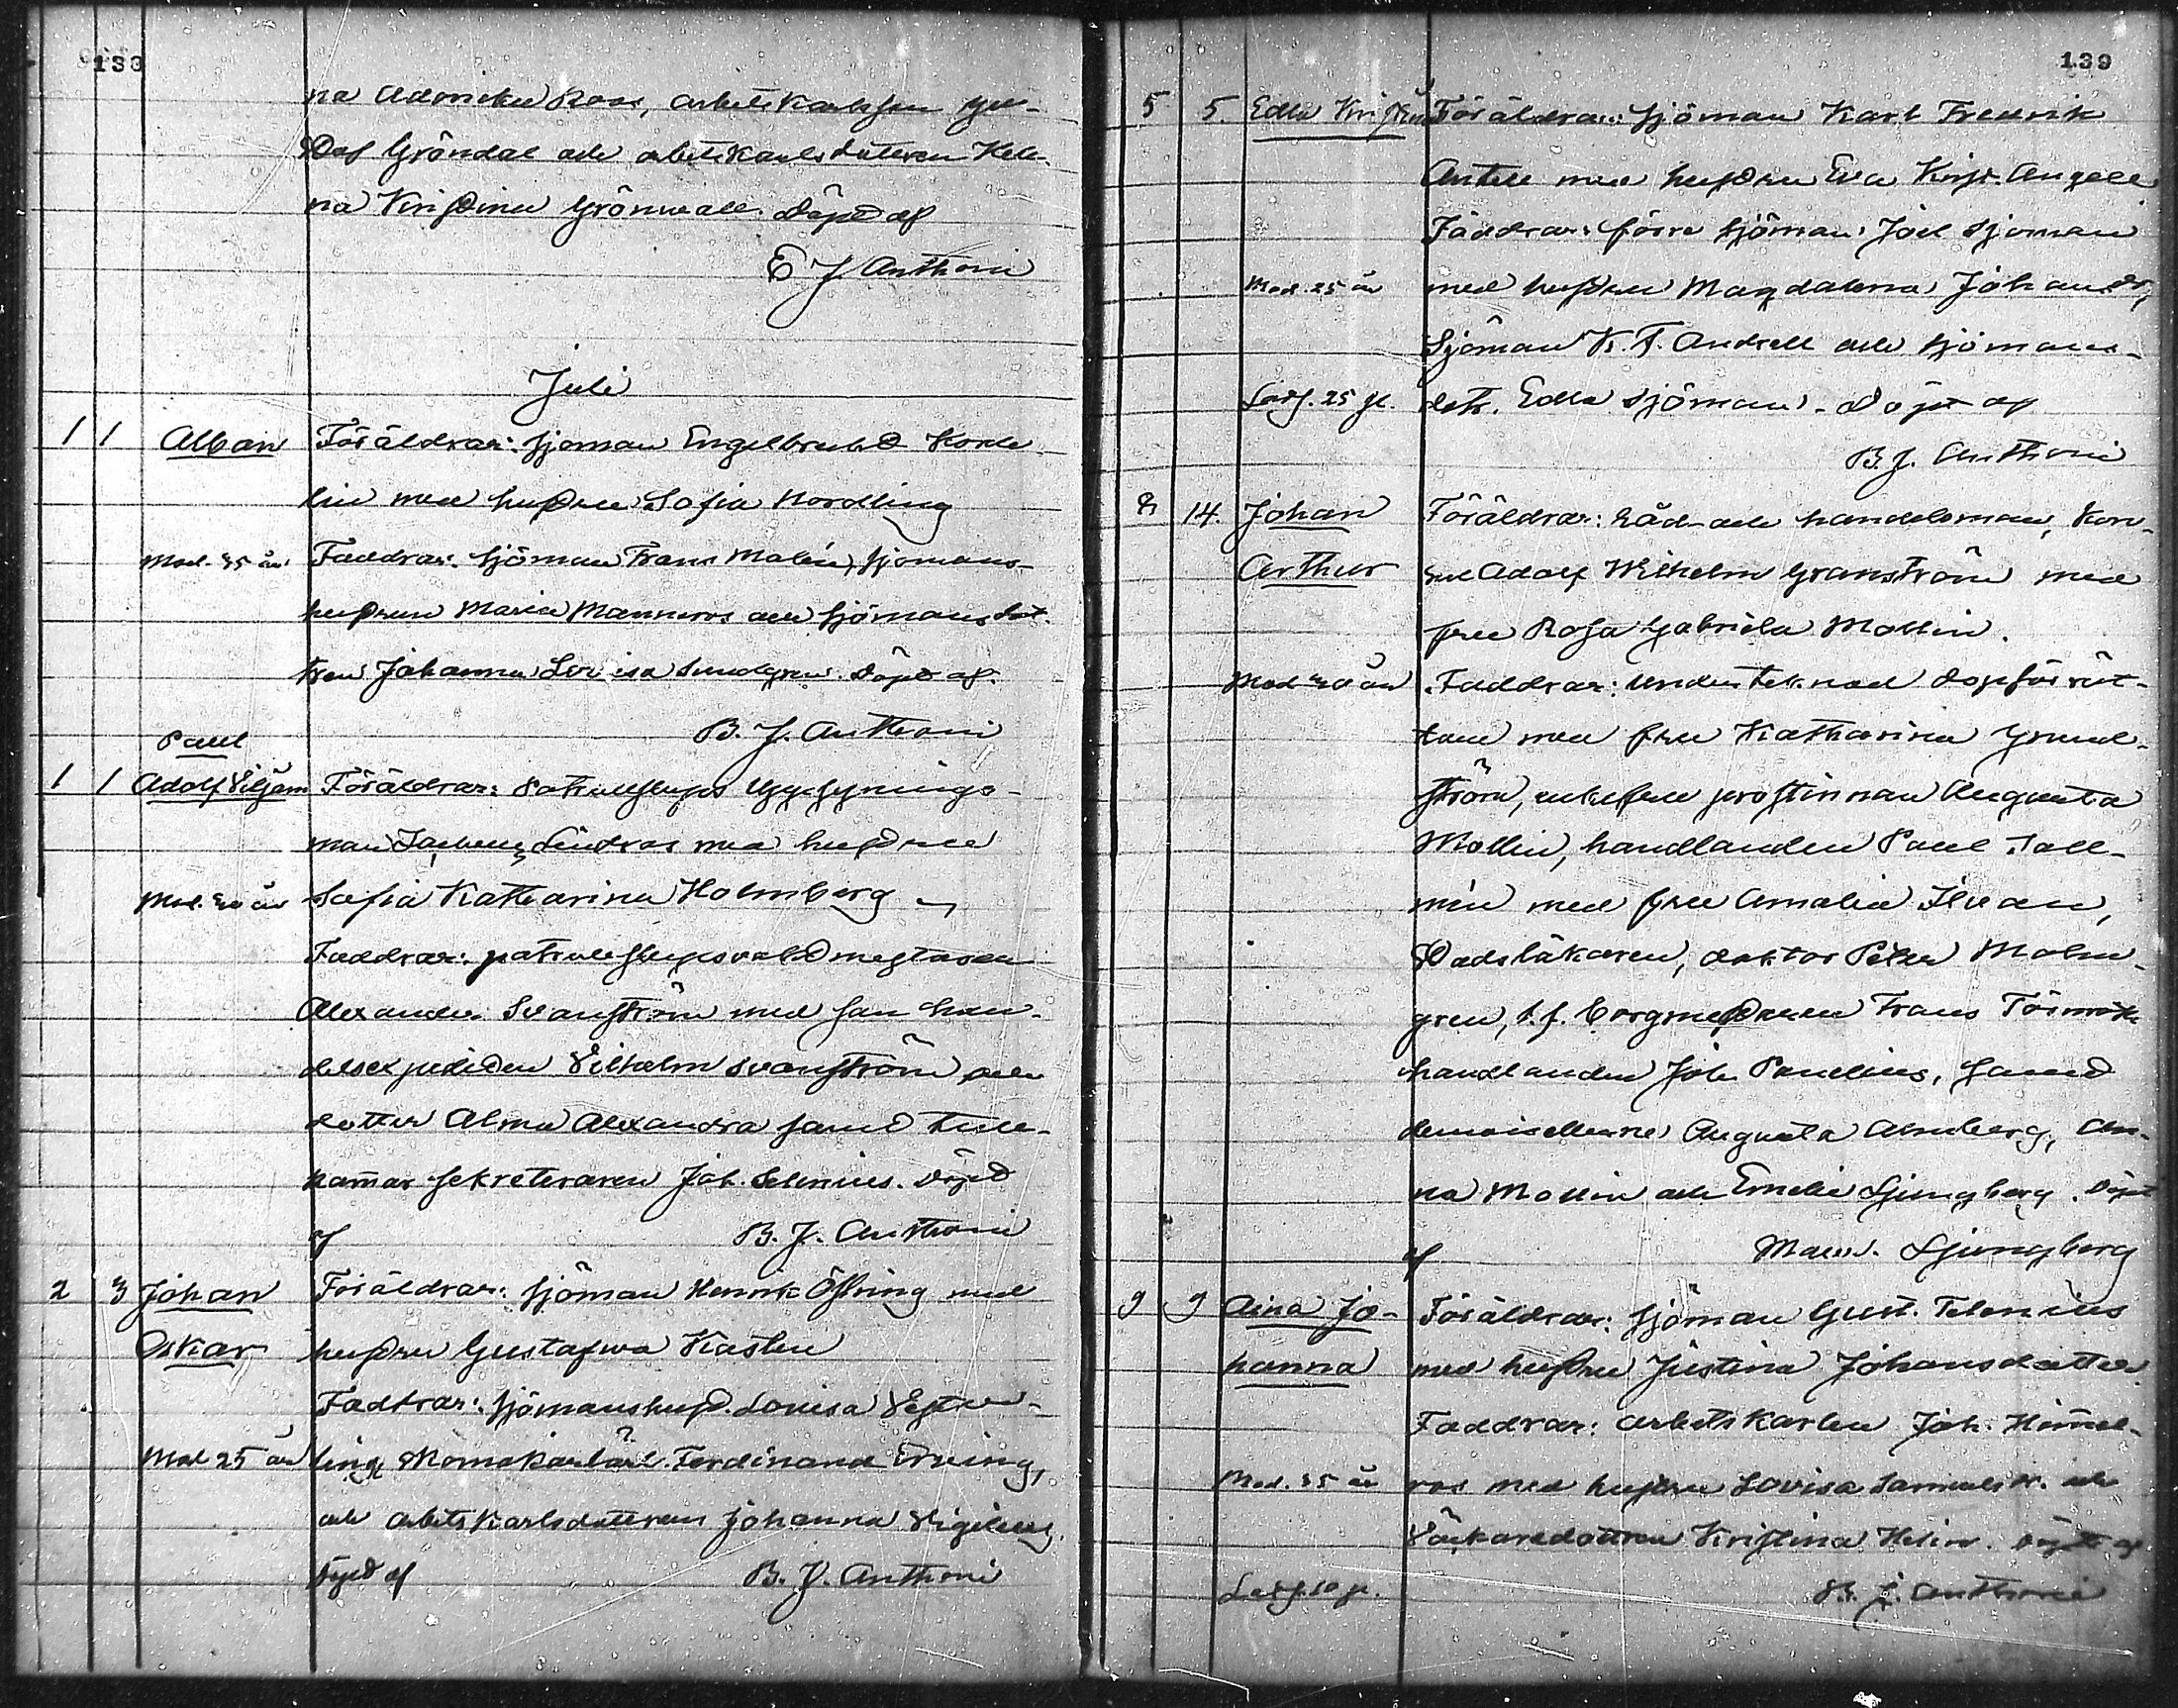 133
na Roos, arbetskarlssen Gu-
staf Gröndal och arbetskarlsdottern Hele-
na Kristina Grönvall. Döpt af
E J Anthoni
Juli
1 1 Alban Föräldrar: Sjöman Engelbrecht Korde
lin med hustru Sofia Nordling
Mod. 35 år Faddrar: Sjöman Frans Malin, Sjömans-
hustrun Maria Manneros och Sjömansdot-
tren Johanna Lovisa Sundgren. Döpt af
B. J. Anthoni
Paul
1 1 Adolf Viljam Föräldrar: Patrullskepps Uppsynings-
man Lindros med hustru
Mod. 30 år Sofia Katharina Holmberg
Faddrar: patrullskeppsvaktmestaren
Alexander Svanström med son han-
delsexpediten Vilhelm Svanström och
dotter Alma Alexandra samt tull-
kammar sekreteraren Joh. Selenius. Döpt
af B. J. Anthoni
2 3 Johan Föräldrar: Sjöman Henrik Östring med
Oskar hustru Gustafva Kasten
Faddrar: Sjömanshust. Lovisa Vester-
Mod 25 år ling, Ferdinand
och arbetskarlsdottern Johanna
Döpt af B. J. Anthoni
139
5 5. Edla Kristin Föräldrar: Sjöman Karl Fredrik
Antell med hustru Eva Krist. Angell
Faddrar: förre Sjöman Joel Sjöman
Mod. 25 år med hustru Magdalena Johansdr,
Sjöman K. F. Andsell och Sjömans-
Lösf. 25 p. dotr. Edla Sjöman. Döpt af
B. J. Anthoni
8 14. Johan Föräldrar: Råd- och handelsman, Kon-
Arthur sul Adolf Wilhelm Granström med
fru Rosa Gabriela Mollin.
Mod 30 år Faddrar: Undertecknad dopförrät-
tare med fru Katharina Grund-
ström, enkefru prostinnan Augusta
Mollin, handlanden Paul Tall-
min med fru Amalia Ilvan,
Stadsläkaren, doktor Peter Malm-
gren, t.f. borgmestaren Frans Törnroth
handlanden Joh. Paulins, samt
demoisellerne Augusta Almberg, An-
na Mollin och Emelie Ljungberg. Döpt
af Maur. Ljungberg
9 9 Aina Jo- Föräldrar: Sjöman Gust. Telenius
hanna med hustru Justina Johansdotter
Faddrar: arbetskarlen Joh. Himmel-
Mod. 35 år ros med hustru Lovisa Samuelsdr. och
dottren Kristina Helin. Döpt af
B. J. Anthoni